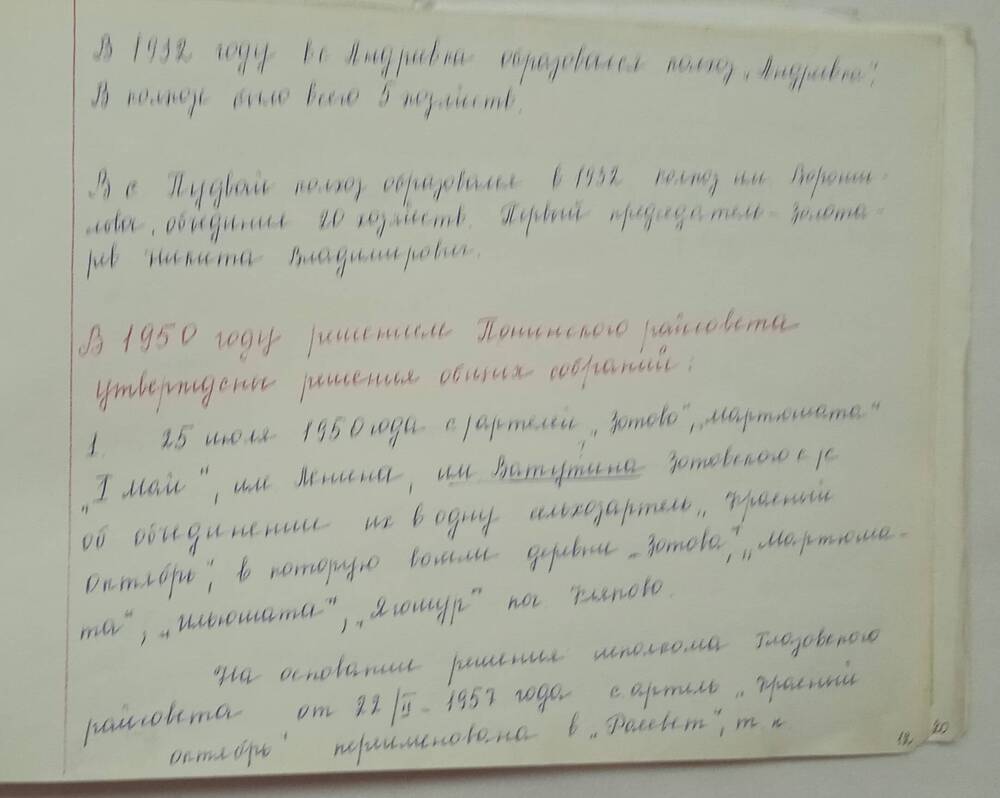 В 1932 году в с Андреевка образовался колхоз „Андреевка",
В колхозе было всего 5 хозяйств.
В с Пудвай колхоз образовался в 1932 колхоз им Вороши-
лова, объединив 20 хозяйств. Первый председатель - Золота-
рев Никита Владимирович.
В 1950 году решением Понинского райсовета
утверждены решения общих собраний:
1. 25 июля 1950 года с/артелей „Зотово", „Мартюшата"
„I май", им Ленина, им Ватутина Зотовского с/с
об объединении их в одну сельхозартель „Красный
октябрь", в которую вошли деревни „Зотово", „Мартюша-
та", „Ильюшата", „Ягошур" пог. Кляпово.
На основании решения исполкома Глазовского
райсовета от 22/II - 1957 года с.артель „Красный
октябрь" переименована в „Рассвет", т.к.
19. 20